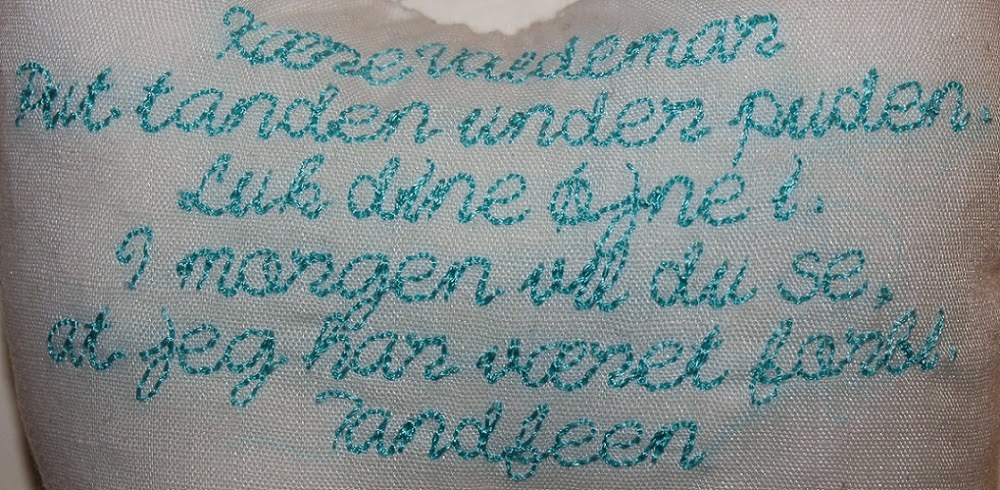 Kære Valdemar
Put tanden under puden.
Luk dine øjne i.
I morgen vil du se,
at jeg har været forbi.
Tandfeen